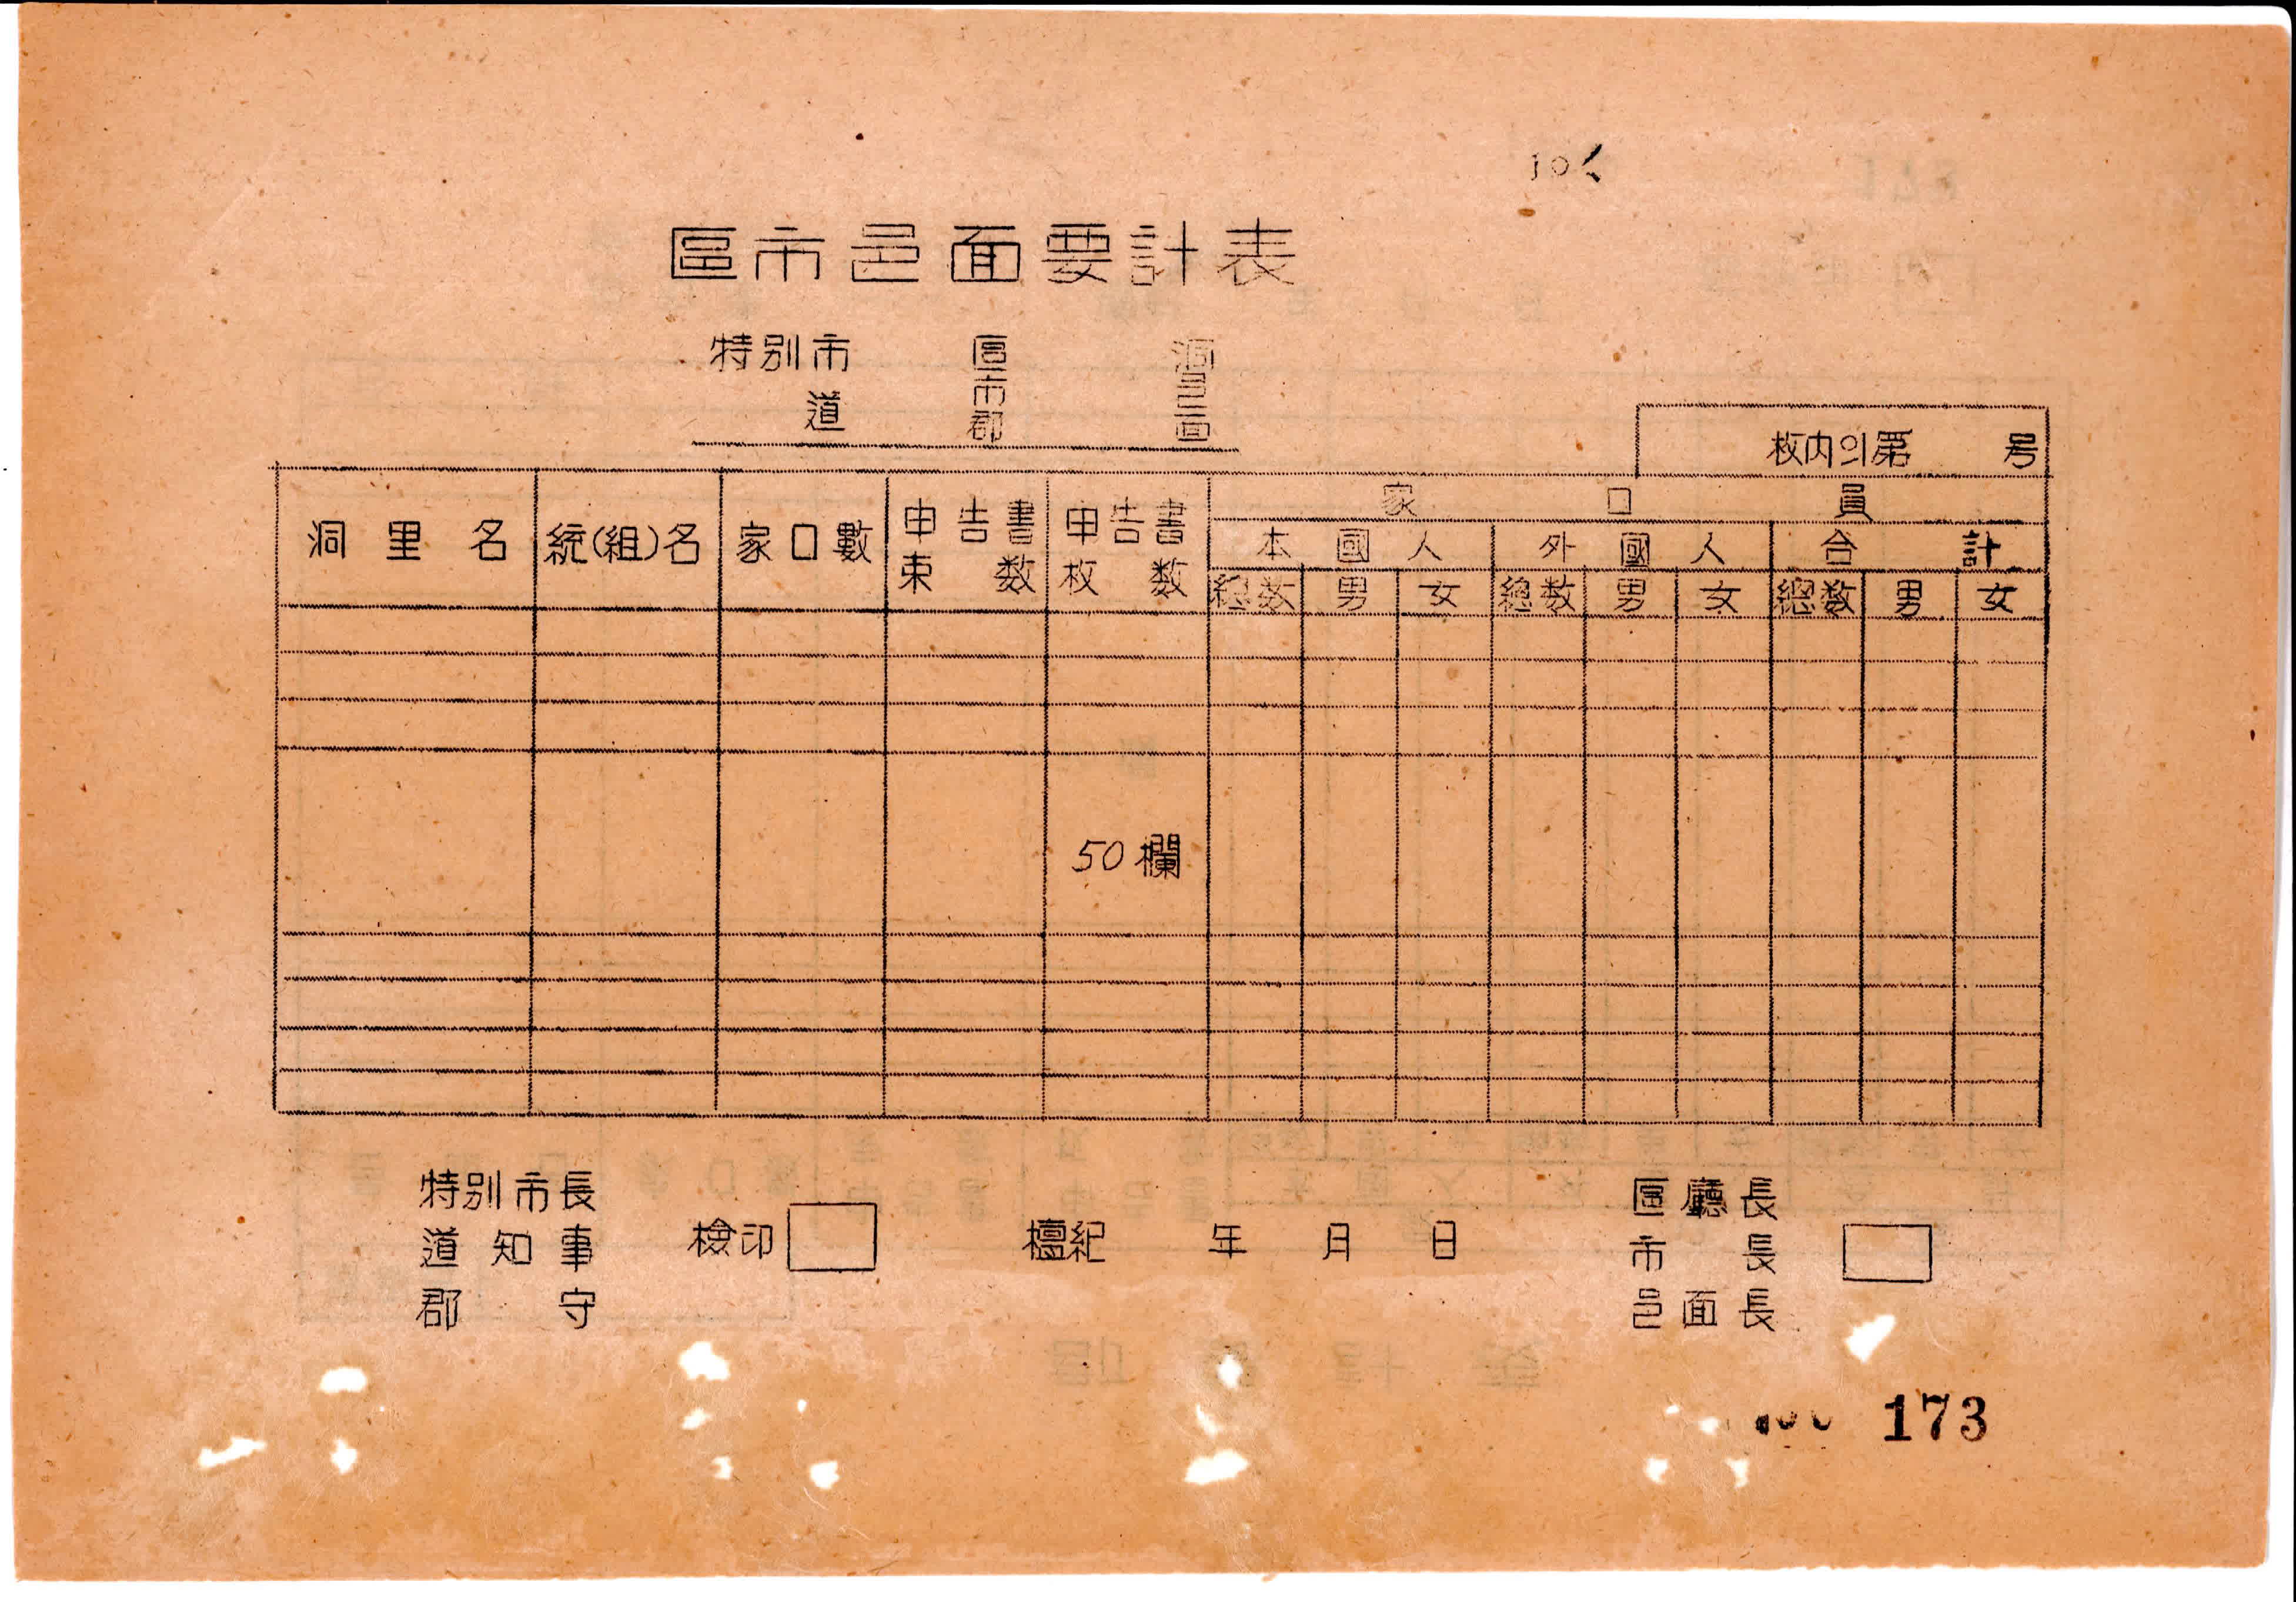 區市邑面要計表
特別市 區 洞
市 邑
道 郡 面
枚内의第 号
家口員
洞里名 統(組)名 家口數 申告書 申告書 本國人 外國人 合計
束数 枚数 總数 男 女 總数 男 女 總数 男 女
50欄
特別市長 區廳長
道知事 檢印 檀紀 年 月 日 市長
郡守 邑面長
173